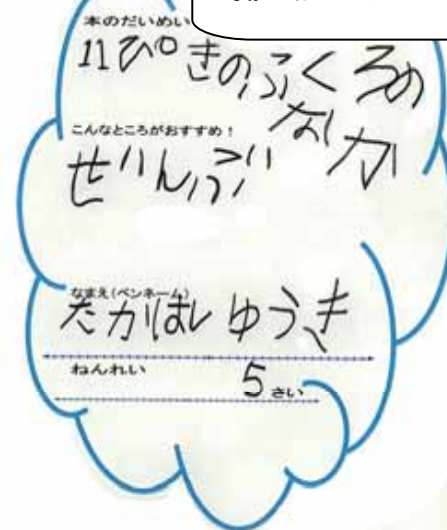 本のだいめい
11ぴきのふくろの
なか
こんなところがおすすめ!
ぜんぶ
なまえ(ペンネーム)
たかはし ゆうき
ねんれい
5 さい